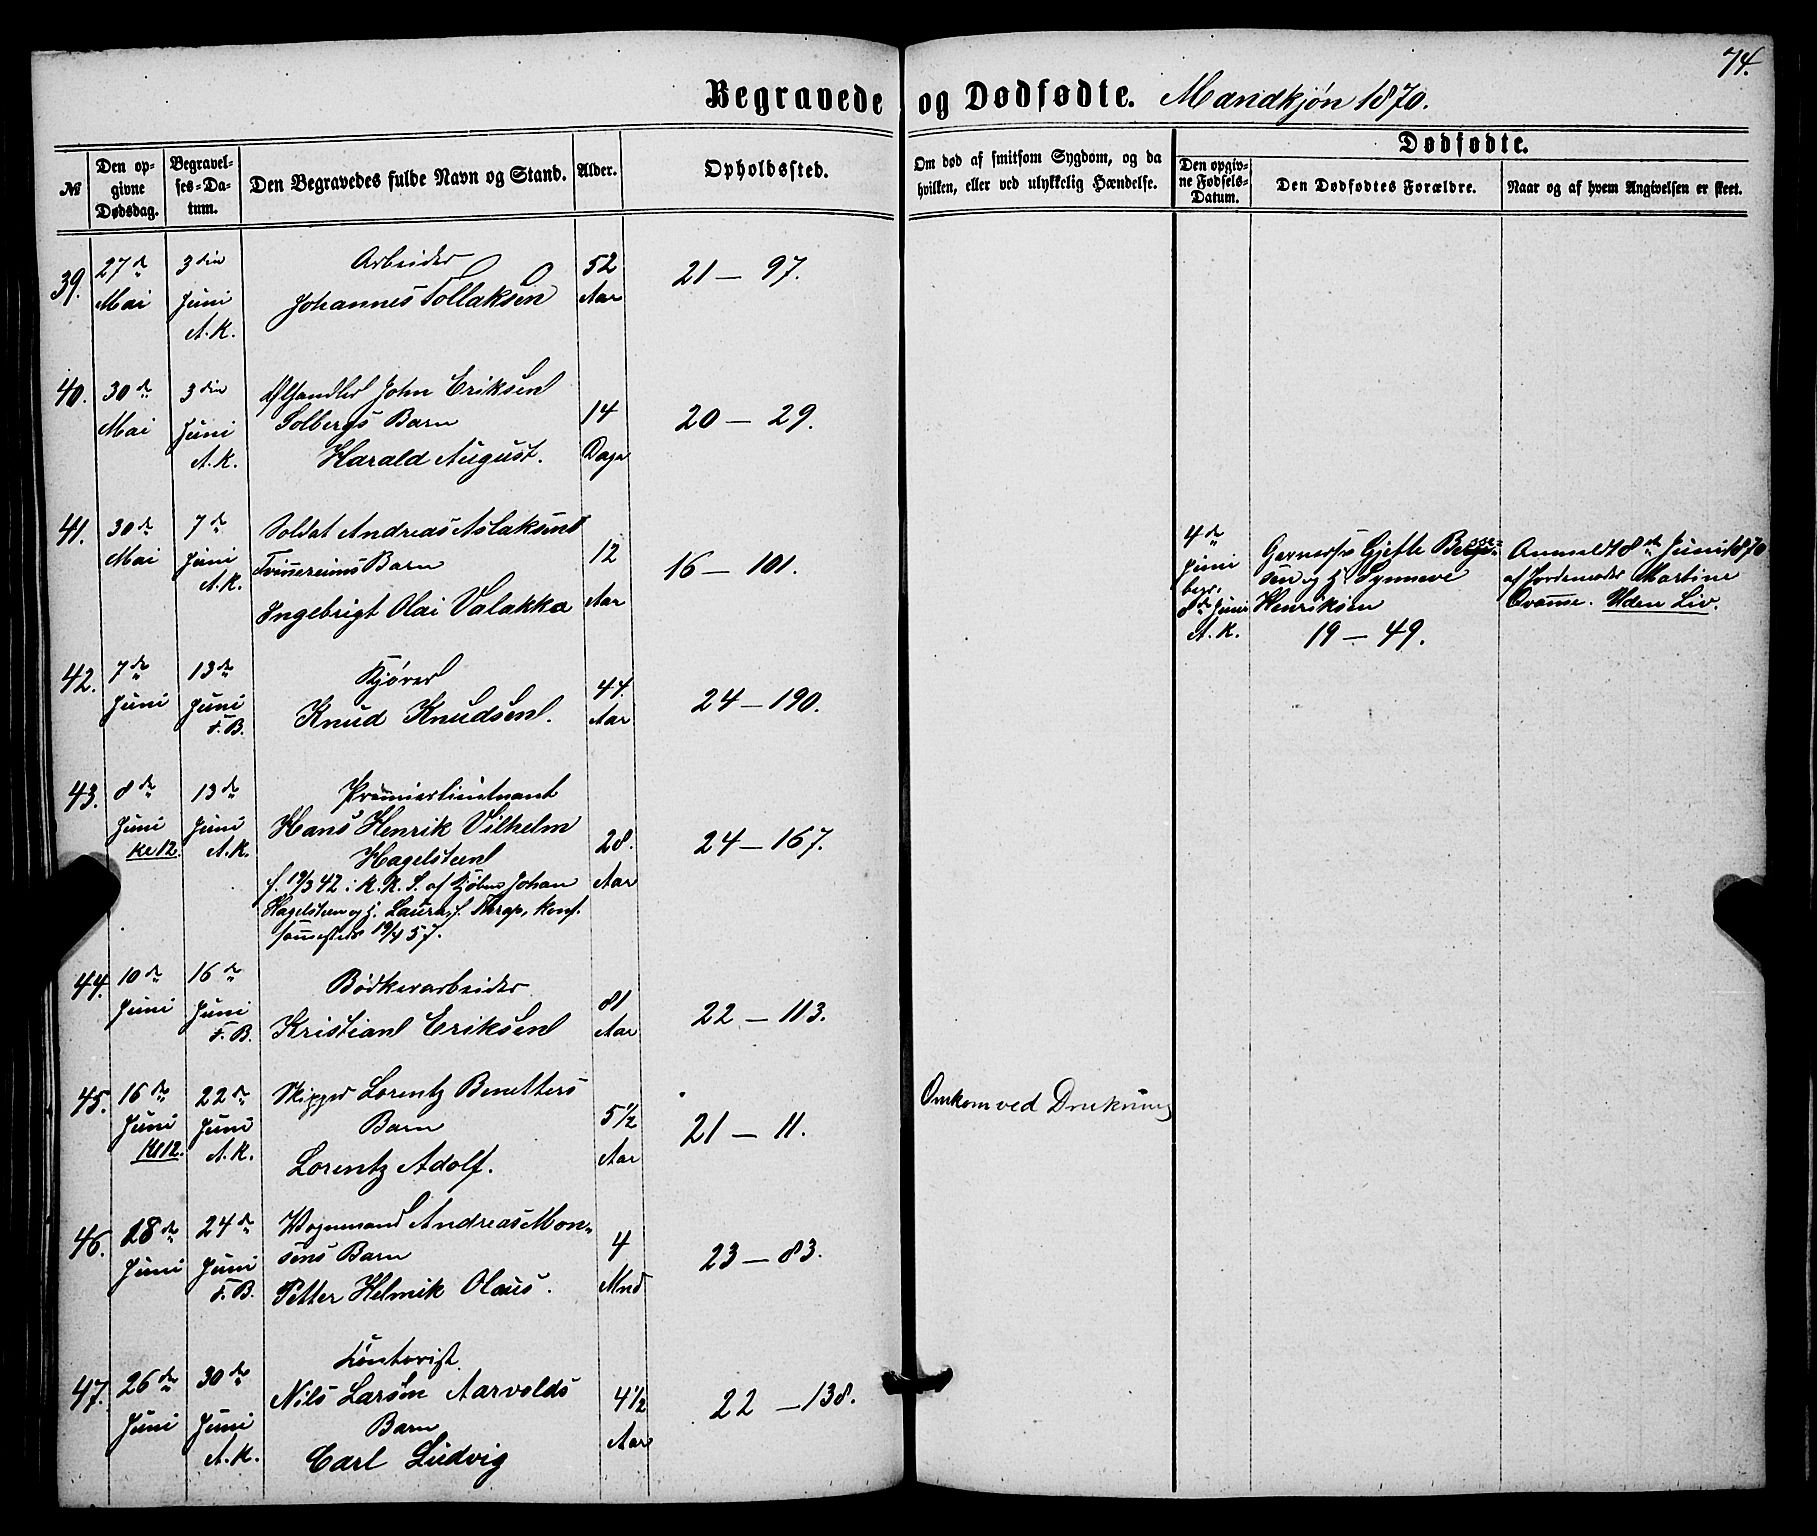 74.
Begravede og Dødfødte. Mandkjøn 1870.
No
Den op-
givne
Dødsdag.
Begravel-
ses-Da-
tum.
Den Begravedes fulde Navn og Stand.
Alder.
Opholdssted.
Om død af smitsom Sygdom, og da
hvilken, eller ved ulykkelig Hændelse.
Dødfødte.
Den opgiv-
ne Fødsels-
Datum.
Den Dødfødtes Forældre.
Naar og af hvem Angivelsen er skeet.
39.
27de
Mai
3die
Juni
A. K.
Arbeider
Johannes Tollaksen
52
Aar
21 - 97.
40.
30de
Mai
3die
Juni
A. K.
John Eriksen
Solbergs Barn
Harald August.
14
Dage
20 - 29.
41.
30de
Mai
7de
Juni
A. K.
Soldat Andreas Aslaksens
Barn
Ingebrigt Olai Valakka
12
Aar
16 - 101.
4de
Juni
begr.
8de Juni
A. K.
Gjefle
sen og H. Synneve
Henriksen
19 - 49.
Anmeldt 8de Juni 1870
af Jordemoder Martine
Uden Liv.
42.
7de
Juni
13de
Juni
F. B.
Kjører
Knud Knudsen.
44.
Aar
24 - 190.
43.
8de
Juni
Kl 12.
13de
Juni
A. K.
Premierlieutnant
Hans Henrik Vilhelm
Hagelsteen
f. 19/3 42 i K. K. S. af Kjøbm Johan
Hagelsteen og H. Laura f. Thrap, konf.
sammesteds 19/4 57.
28.
Aar
24 - 167.
44.
10de
Juni
16de
Juni
F. B.
Bødkerarbeider
Kristian Eriksen
81
Aar
22 - 113.
45.
16de
Juni
Kl 12.
22de
Juni
A. K.
Skipper Lorentz Benetters
Barn
Lorentz Adolf.
5 1/2
Aar
21 - 11.
Omkom ved Drukning
46.
18de
Juni
24de
Juni
F. B.
Vognmand Andreas Mon-
sens Barn
Petter Helmik Olaus.
4
Mnd
23 - 83.
47.
26de
Juni
30de
Juni
A. K.
Kontorist
Nils Larsen Aarvolds
Barn
Carl Ludvig
4 1/2
Aar
22 - 138.